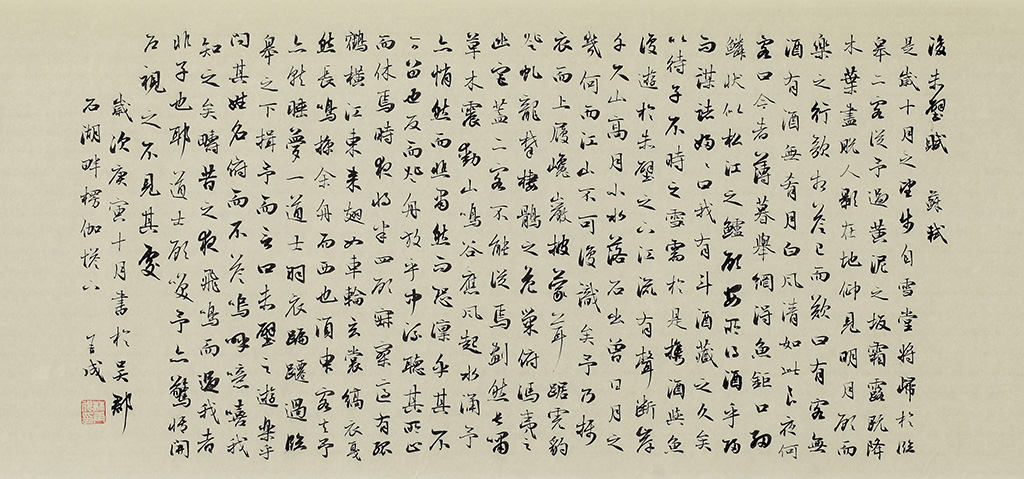 後赤壁賦 蘇軾
是歲十月之望步自雪堂將歸於臨
皋二客從予過黃泥之坂霜露既降
木葉盡脫人影在地仰見明月顧而
樂之行歌相答已而歎曰有客無
酒有酒無肴月白風清如此良夜何
客曰今者薄暮舉網得魚鉅口細
鱗狀似松江之鱸顧安所得酒乎歸
而謀諸婦〻曰我有斗酒藏之久矣
以待子不時之需於是攜酒與魚
復遊於赤壁之下江流有聲斷岸
千尺山高月小水落石出曾日月之
幾何而江山不可復識矣予乃攝
衣而上履巉巖披蒙茸踞虎豹
登虬龍攀棲鶻之危巢俯馮夷之
幽宮蓋二客不能從焉劃然長嘯
草木震動山鳴谷應風起水涌予
亦悄然而悲肅然而恐凜乎其不
可留也反而登舟放乎中流聽其所止
而休焉時夜將半四顧寂寥適有孤
鶴橫江東來翅如車輪玄裳縞衣戛
然長鳴掠余舟而西也須臾客去予
亦就睡夢一道士羽衣蹁躚過臨
皋之下揖予而言曰赤壁之遊樂乎
問其姓名俯而不答嗚呼噫嘻我
知之矣疇昔之夜飛鳴而過我者
非子也耶道士顧笑予亦驚悟開
戶視之不見其處
歲次庚寅十月書於吳郡
石湖畔楞伽塔下 成